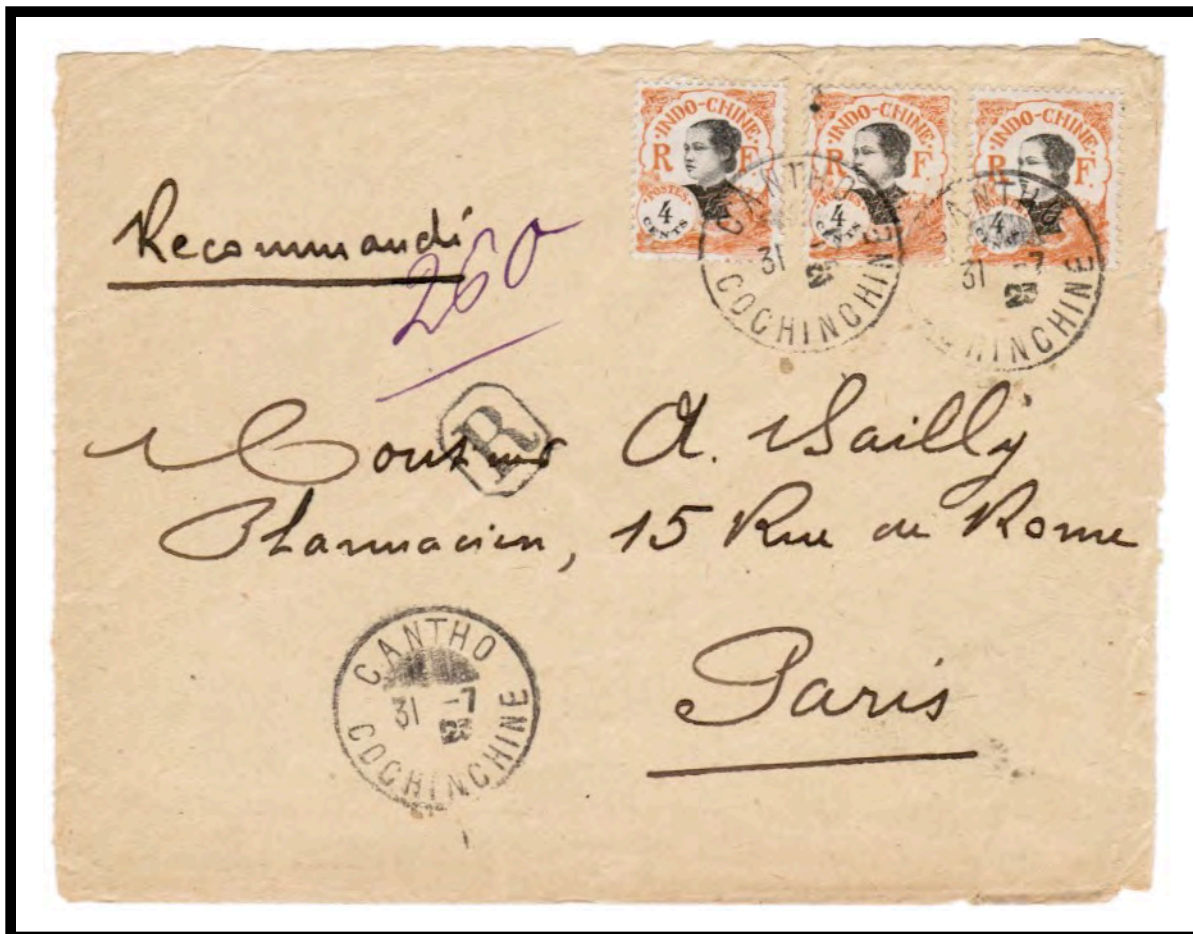 INDO-CHINE
R F
POSTES
4
CENTS
INDO-CHINE
R F
POSTES
4
CENTS
INDO-CHINE
R F.
4
CANTHO
31
COCHINCHINE
ANTHO
31 -7
HINCHINE
Recommandé
260
R
Monsieur A. Sailly
Pharmacien, 15 Rue de Rome
Paris
CANTHO
31 -7
COCHINCHINE